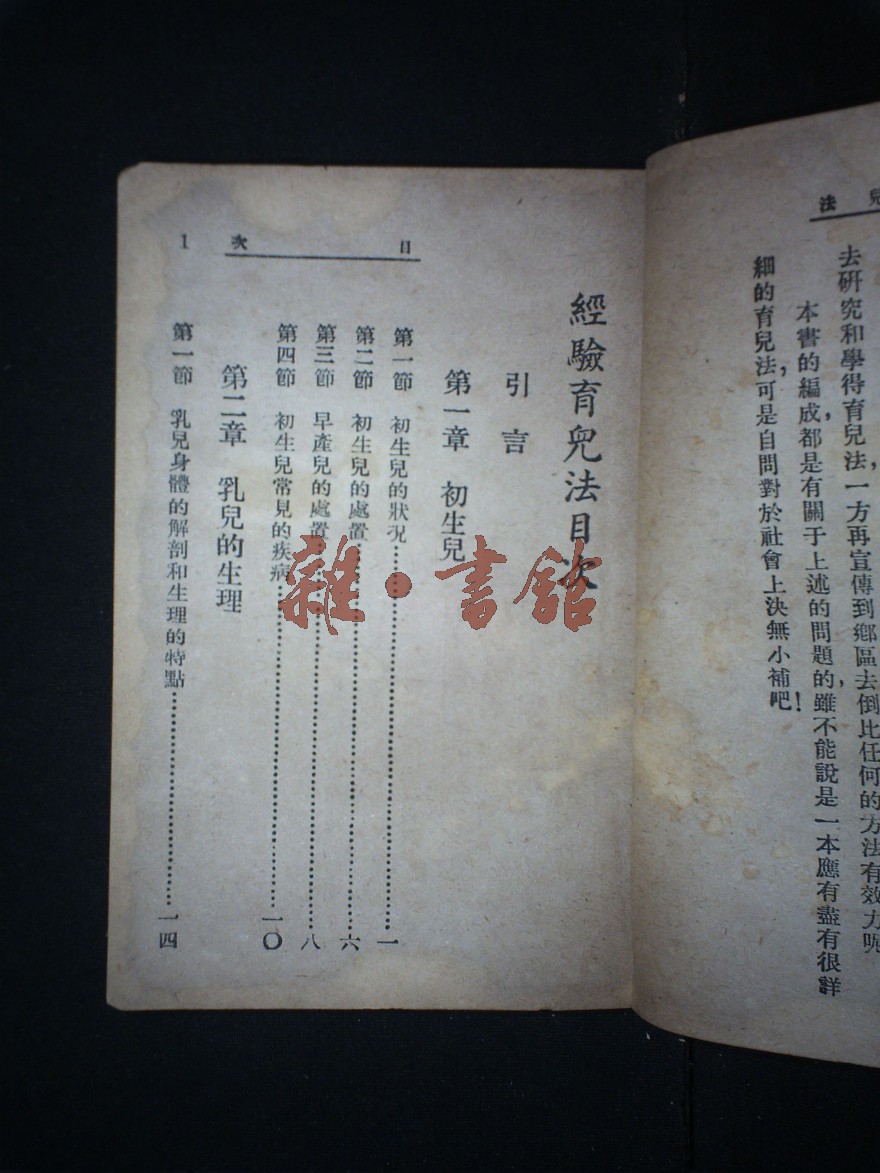 兒法
去研究和學得育兒法，一方再宣傳到鄉區去，倒比任何的方法有效力呢
本書的編成，都是有關于上述的問題的，雖不能說是一本應有盡有很詳
細的育兒法，可是自問對於社會上決無小補吧！
目次 1
經驗育兒法目次
引言
第一章 初生兒
第一節 初生兒的狀況…………一
第二節 初生兒的處置…………六
第三節 早產兒的處置…………八
第四節 初生兒常見的疾病…………一〇
第二章 乳兒的生理
第一節 乳兒身體的解剖和生理的特點…………一四
雜·書館